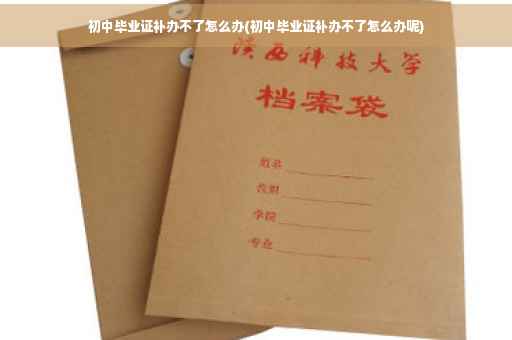 初中毕业证补办不了怎么办(初中毕业证补办不了怎么办呢)
陕西科技大学
档案袋
姓名
学院
专业